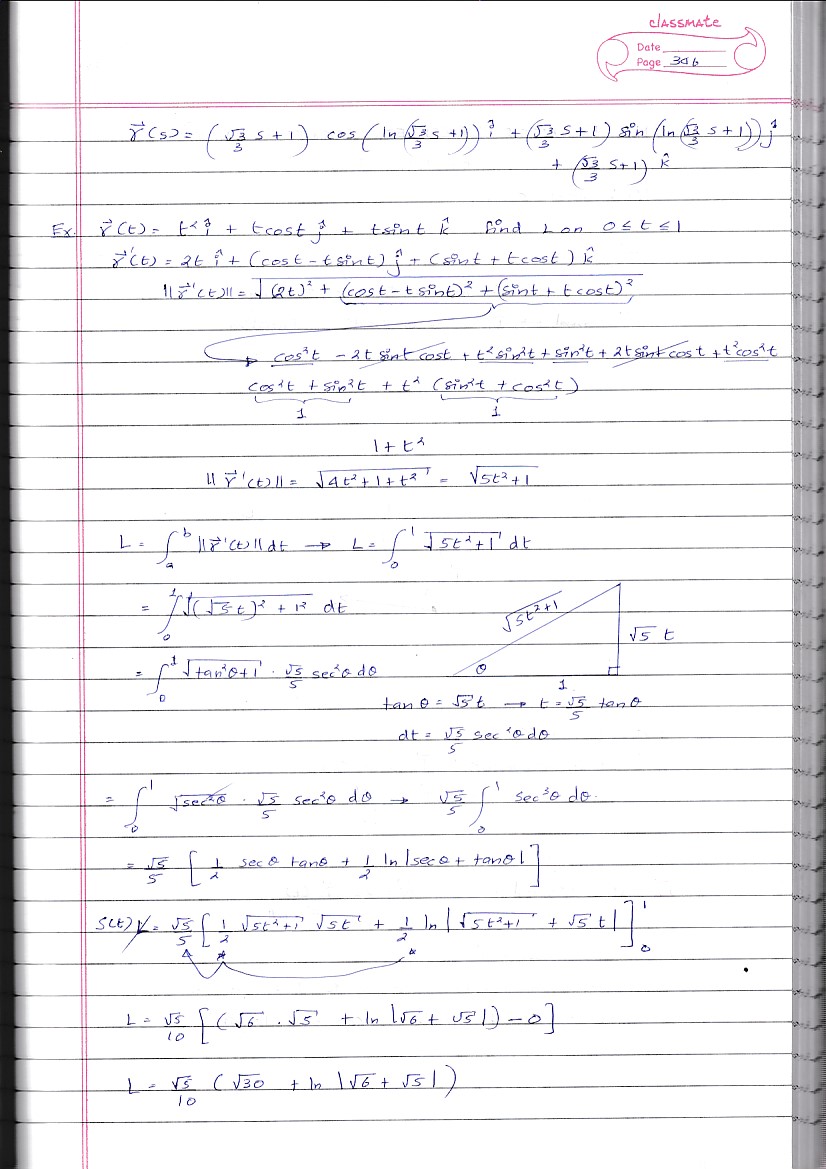 classmate
Date
Page 306
r⃗(s) = (√3/3 s+1) cos(ln(√3/3 s+1)) î + (√3/3 s+1) sin(ln(√3/3 s+1)) ĵ
+ (√3/3 s+1) k̂
Ex. r⃗(t) = t² î + tcost ĵ + tsint k̂ Find L on 0≤t≤1
r⃗'(t) = 2t î + (cost - tsint) ĵ + (sint + tcost) k̂
||r⃗'(t)|| = √((2t)² + (cost - tsint)² + (sint + tcost)²)
→ cos²t - 2tsintcost + t²sin²t + sin²t + 2tsintcost + t²cos²t
cos²t + sin²t + t² (sin²t + cos²t)
1 1
1+t²
||r⃗'(t)|| = √(4t²+1+t²) = √(5t²+1)
L = ∫ₐᵇ ||r⃗'(t)|| dt → L = ∫₀¹ √(5t²+1) dt
= ∫₀¹ √((√5t)² + 1²) dt
√(5t²+1)
√5 t
= ∫₀¹ √(tan²θ+1) · √5/5 sec²θ dθ
θ
1
tanθ = √5t → t = √5/5 tanθ
dt = √5/5 sec²θdθ
= ∫₀¹ √(sec²θ) · √5/5 sec²θ dθ → √5/5 ∫₀¹ sec³θ dθ.
= √5/5 [1/2 secθ tanθ + 1/2 ln|secθ + tanθ|]
S(t) L = √5/5 [1/2 √(5t²+1) √5t + 1/2 ln|√(5t²+1) + √5 t|]₀¹
L = √5/10 [(√6 · √5 + ln|√6 + √5|) - 0]
L = √5/10 (√30 + ln|√6 + √5|)